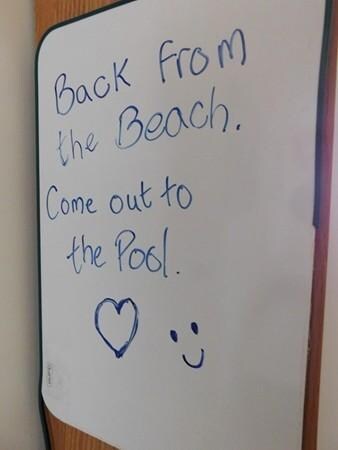 Back from
the Beach.
Come out to
the Pool.